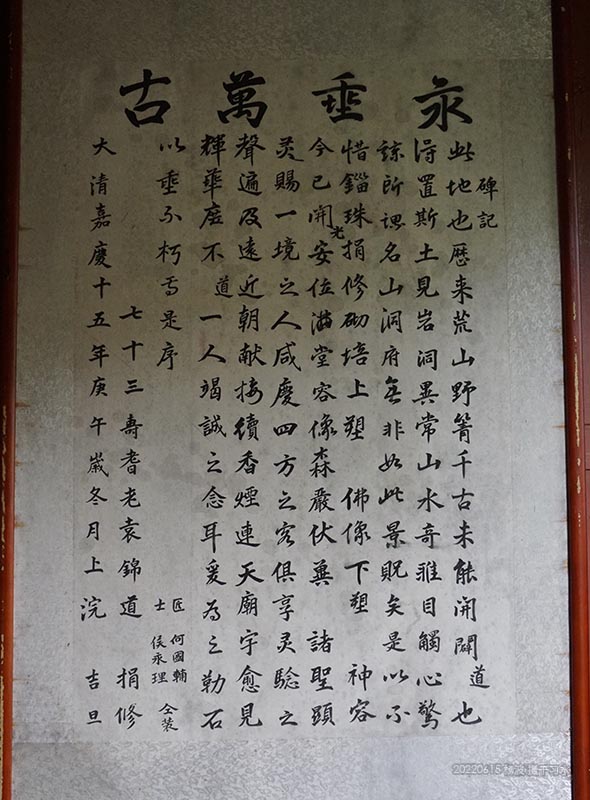 永垂萬古
碑記
此地也歷来荒山野箐千古未能開闢道也
得置斯土見岩洞異常山水奇雅目觸心驚
諒所謂名山洞府無非如此景貺矣是以不
惜錙珠捐修砌培上塑 佛像下塑 神容
今已開光安位满堂容像森嚴伏冀 諸聖顕
灵賜一境之人咸慶四方之客俱享灵驗之
聲遍及遠近朝献接續香煙連天廟宇愈見
輝華庶不道一人竭誠之念耳爰為之勒石
以垂不朽焉是序
匠士 何國輔 侯永理 仝装
七十三壽耆老袁錦道 捐修
大清嘉慶十五年庚午嵗冬月上浣 吉旦
20220615